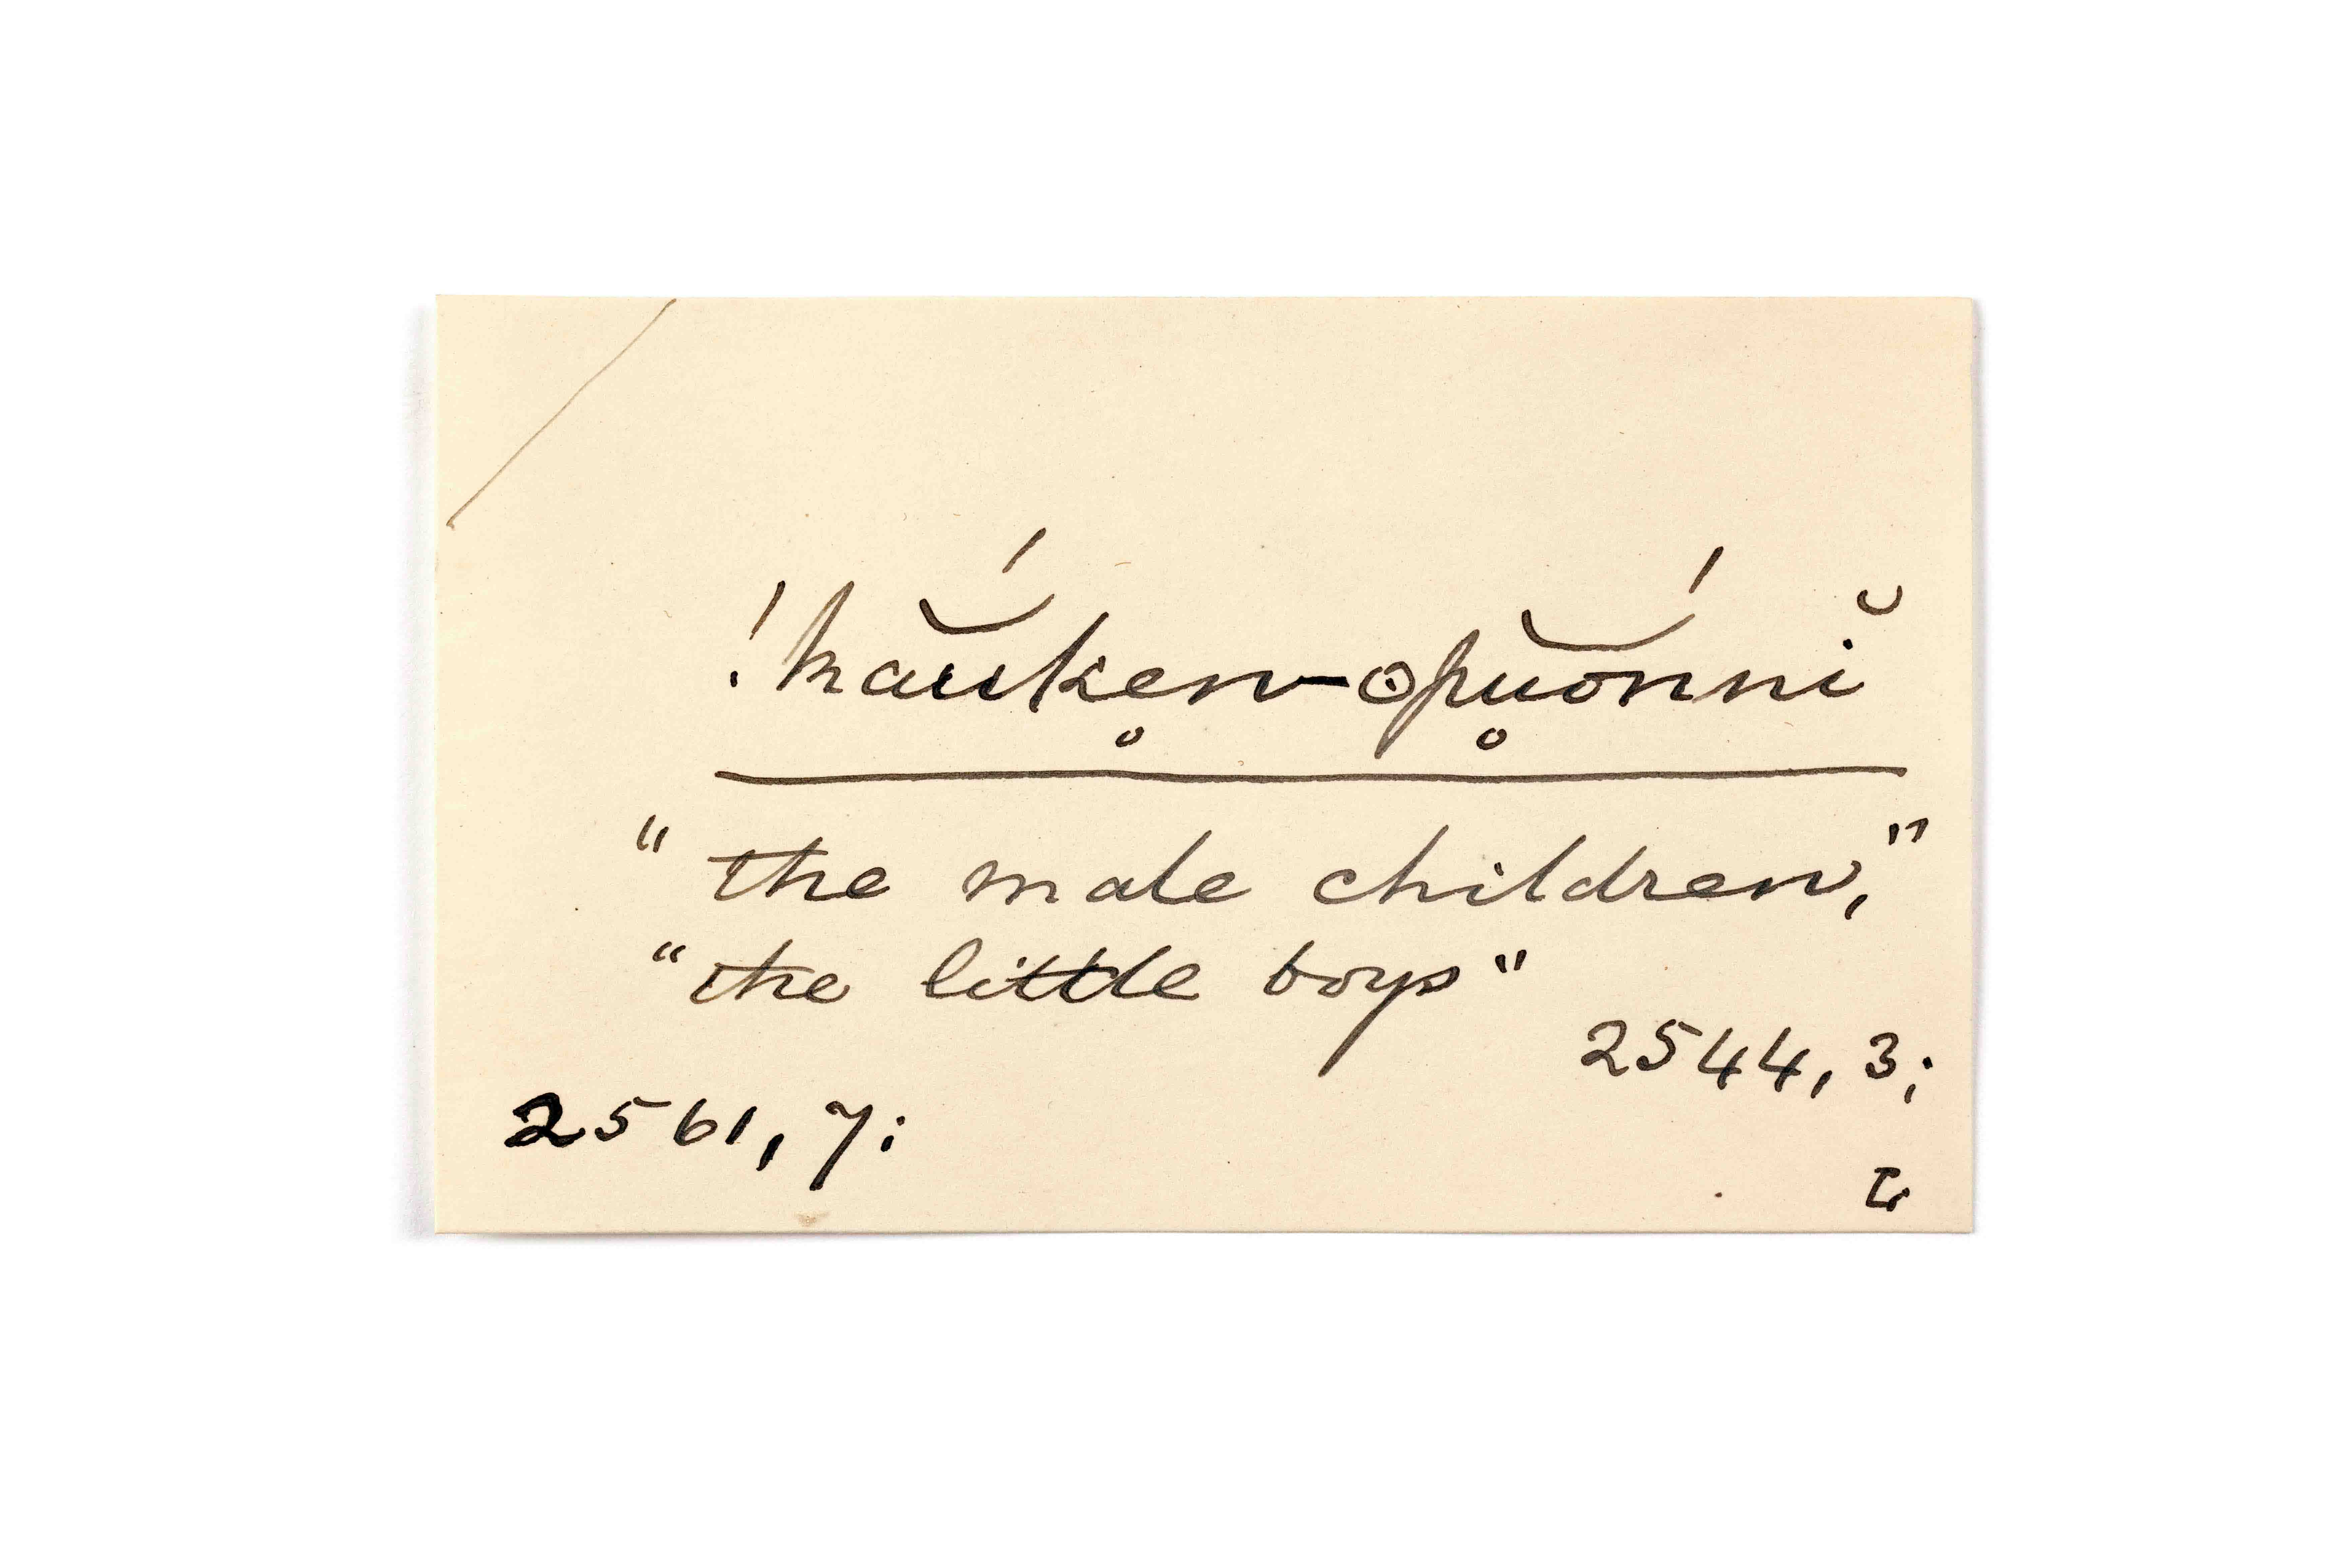 !kắŭkẹn-ʘpu̥ŏ́nnĭ
"the male children,"
"the little boys"
2544, 3;
2561, 7: